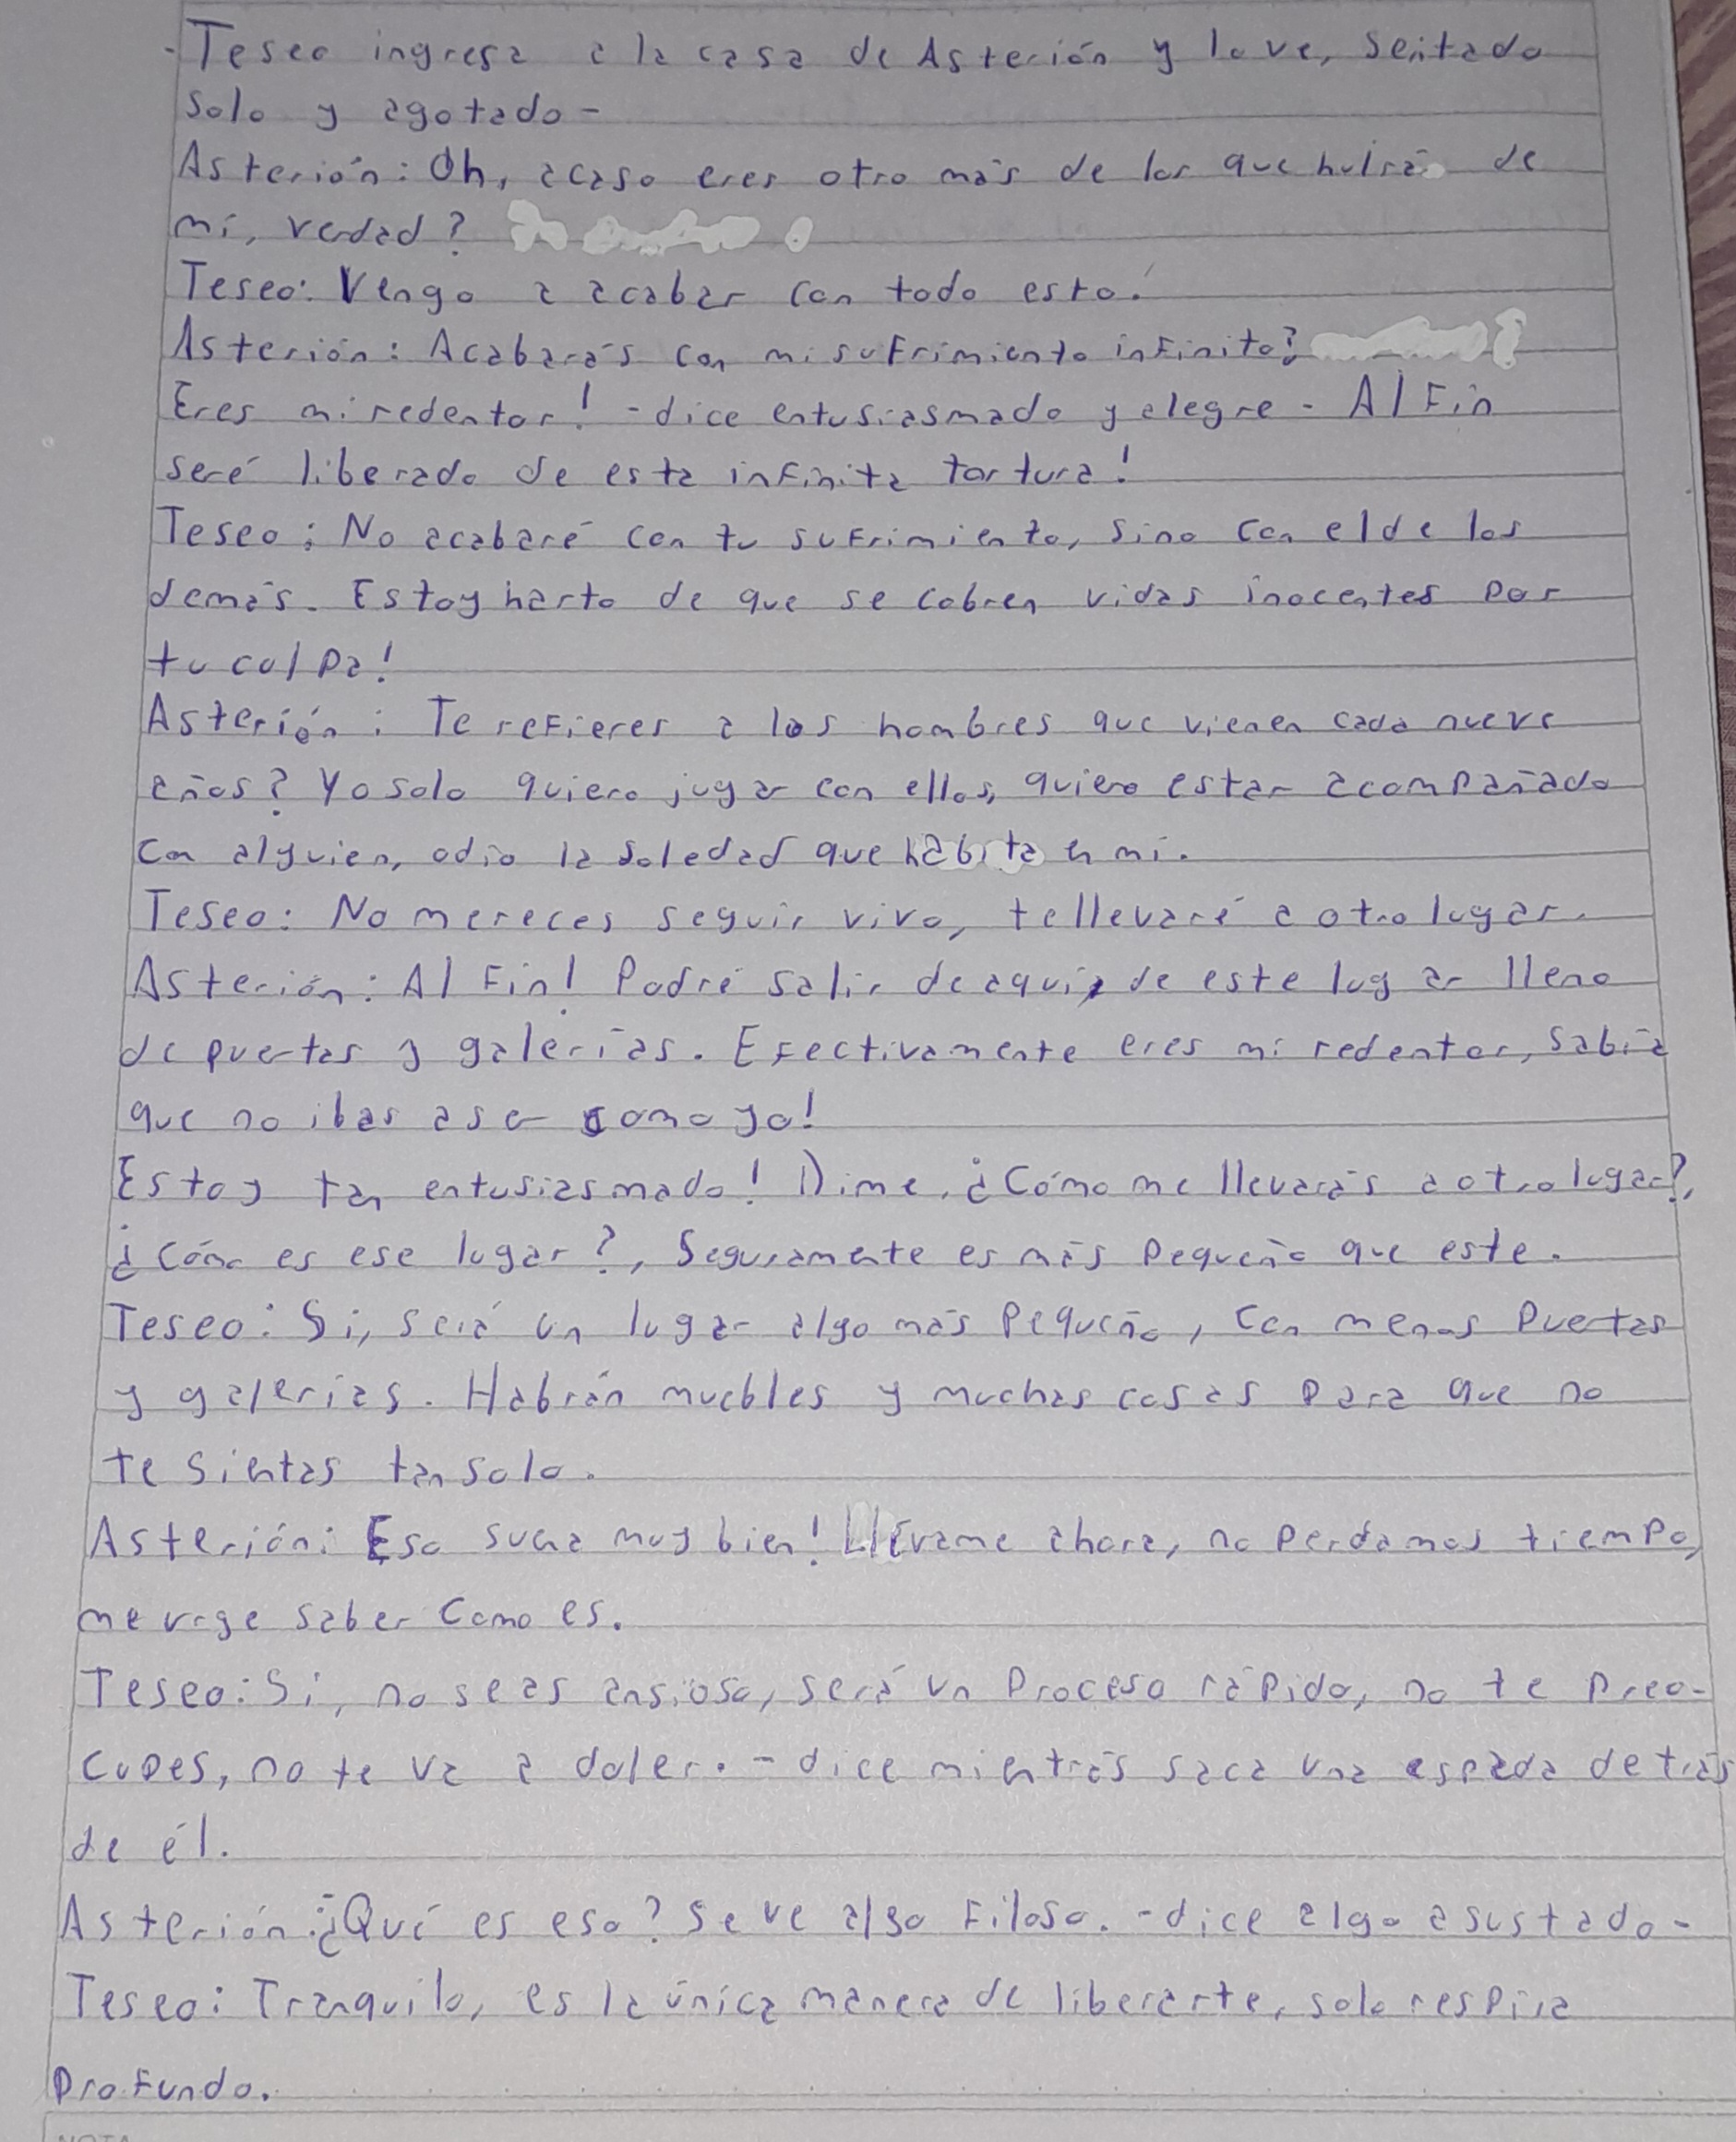 -Teseo ingresa a la casa de Asterión y lo ve, sentado
solo y agotado-
Asterión: Oh, acaso eres otro más de los que huirán de
mí, verdad?
Teseo: Vengo a acabar con todo esto.
Asterión: Acabarás con mi sufrimiento infinito?
Eres mi redentor! -dice entusiasmado y alegre- Al Fin
seré liberado de esta infinita tortura!
Teseo: No acabaré con tu sufrimiento, sino con el de los
demás. Estoy harto de que se cobren vidas inocentes por
tu culpa!
Asterión: Te refieres a los hombres que vienen cada nueve
años? Yo solo quiero jugar con ellos, quiero estar acompañado
con alguien, odio la soledad que habita en mí.
Teseo: No mereces seguir vivo, te llevaré a otro lugar.
Asterión: Al Fin! Podré salir de aquí, de este lugar lleno
de puertas y galerías. Efectivamente eres mi redentor, sabía
que no ibas a ser como yo!
Estoy tan entusiasmado! Dime, ¿Cómo me llevarás a otro lugar?,
¿Cómo es ese lugar?, Seguramente es más pequeño que este.
Teseo: Si, será un lugar algo más pequeño, con menos puertas
y galerías. Habrán muebles y muchas cosas para que no
te sientas tan solo.
Asterión: Eso suena muy bien! Llévame ahora, no perdamos tiempo,
me urge saber como es.
Teseo: Si, no seas ansioso, será un proceso rápido, no te preo-
cupes, no te va a doler. -dice mientrás saca una espada detrás
de él.
Asterión: ¿Qué es eso? Se ve algo filoso. -dice algo asustado-
Teseo: Tranquilo, es la única manera de liberarte, solo respira
profundo.